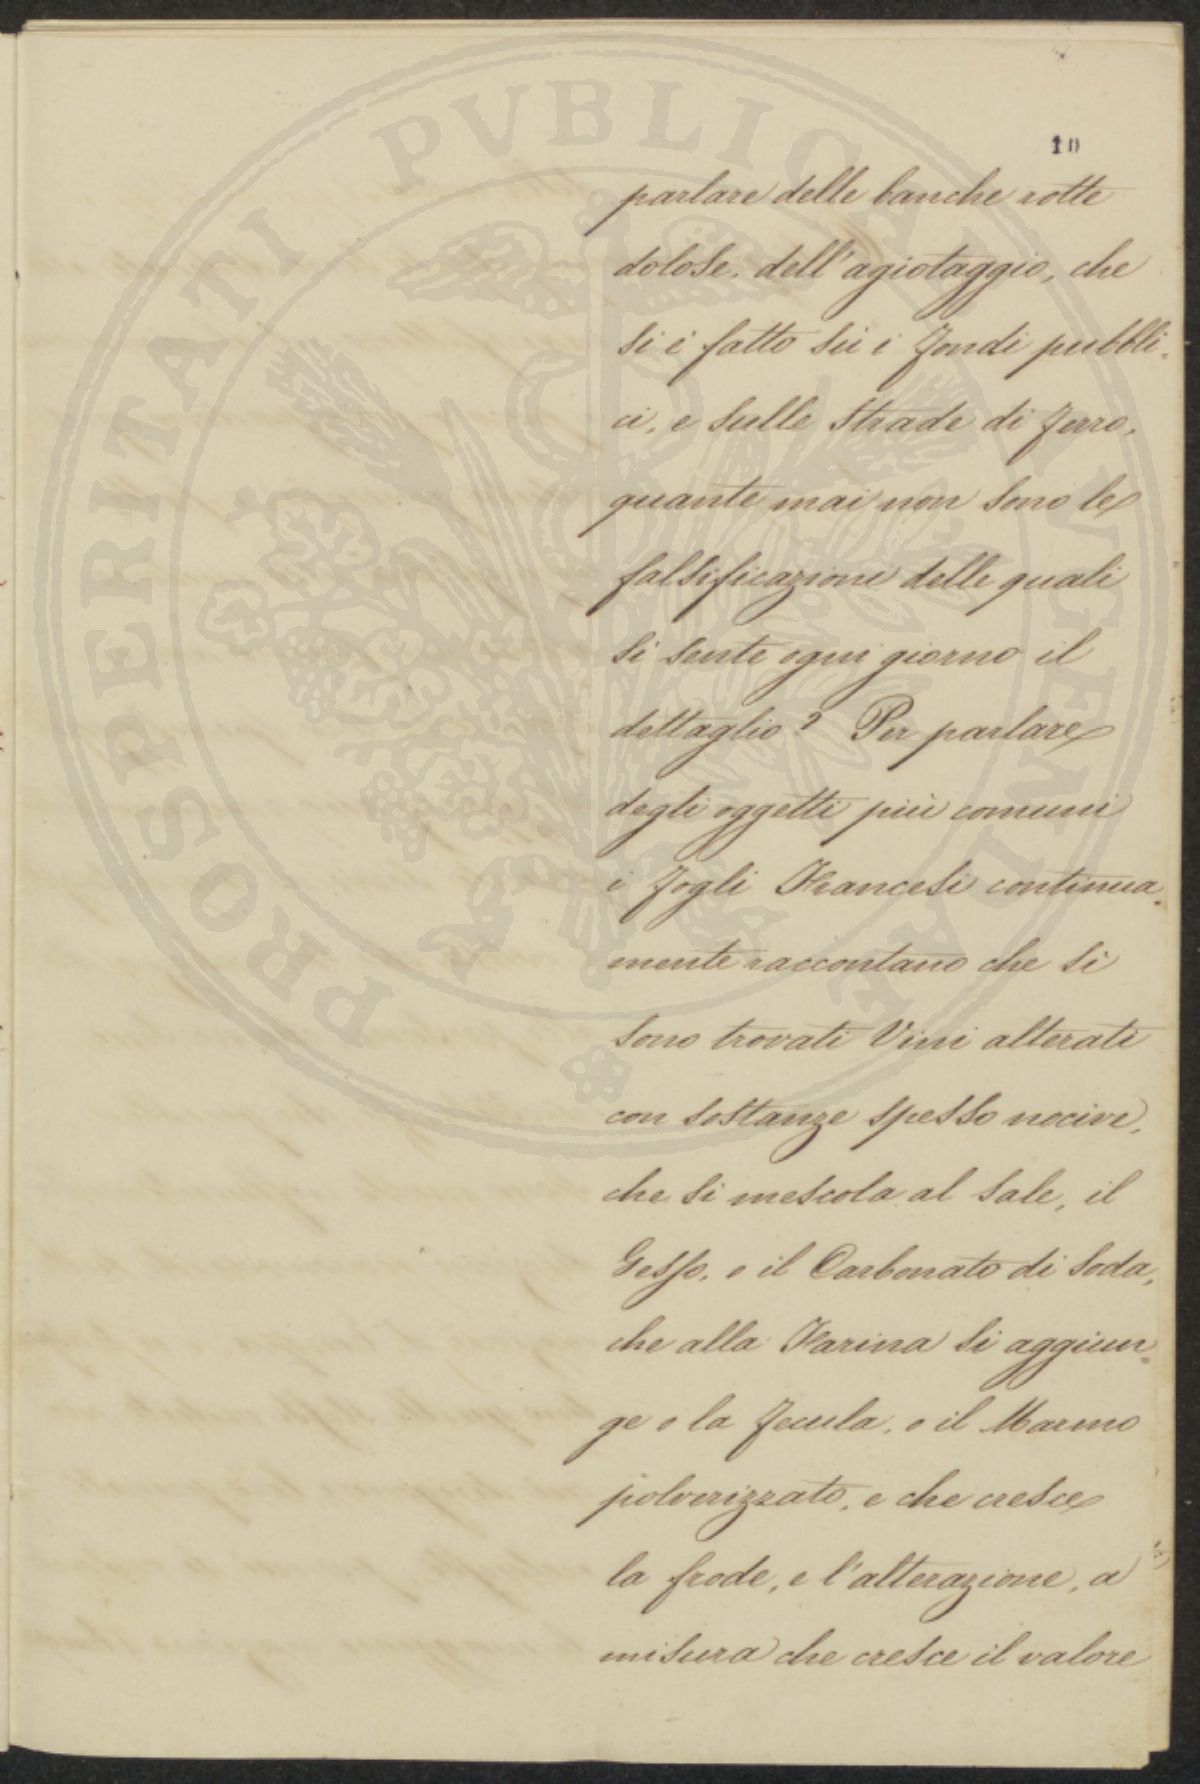 10
parlare delle banche rotte
dolose, dell'agiotaggio, che
si è fatto sù i Fondi pubbli-
ci, e sulle Strade di Ferro,
quante mai non sono le
falsificazione delle quali
si sente ogni giorno il
dettaglio? Per parlare
degli oggetti più comuni
i Fogli Francesi continua-
mente raccontano che si
sono trovati Vini alterati
con sostanze spesso nocive,
che si mescola al Sale, il
Gesso, o il Carbonato di Soda,
che alla Farina si aggiun-
ge o la Fecula, o il Marmo
polverizzato, e che cresce
la frode, e l'alterazione, a
misura che cresce il valore
PROSPERITATI PVBLICAE AVGENDAE